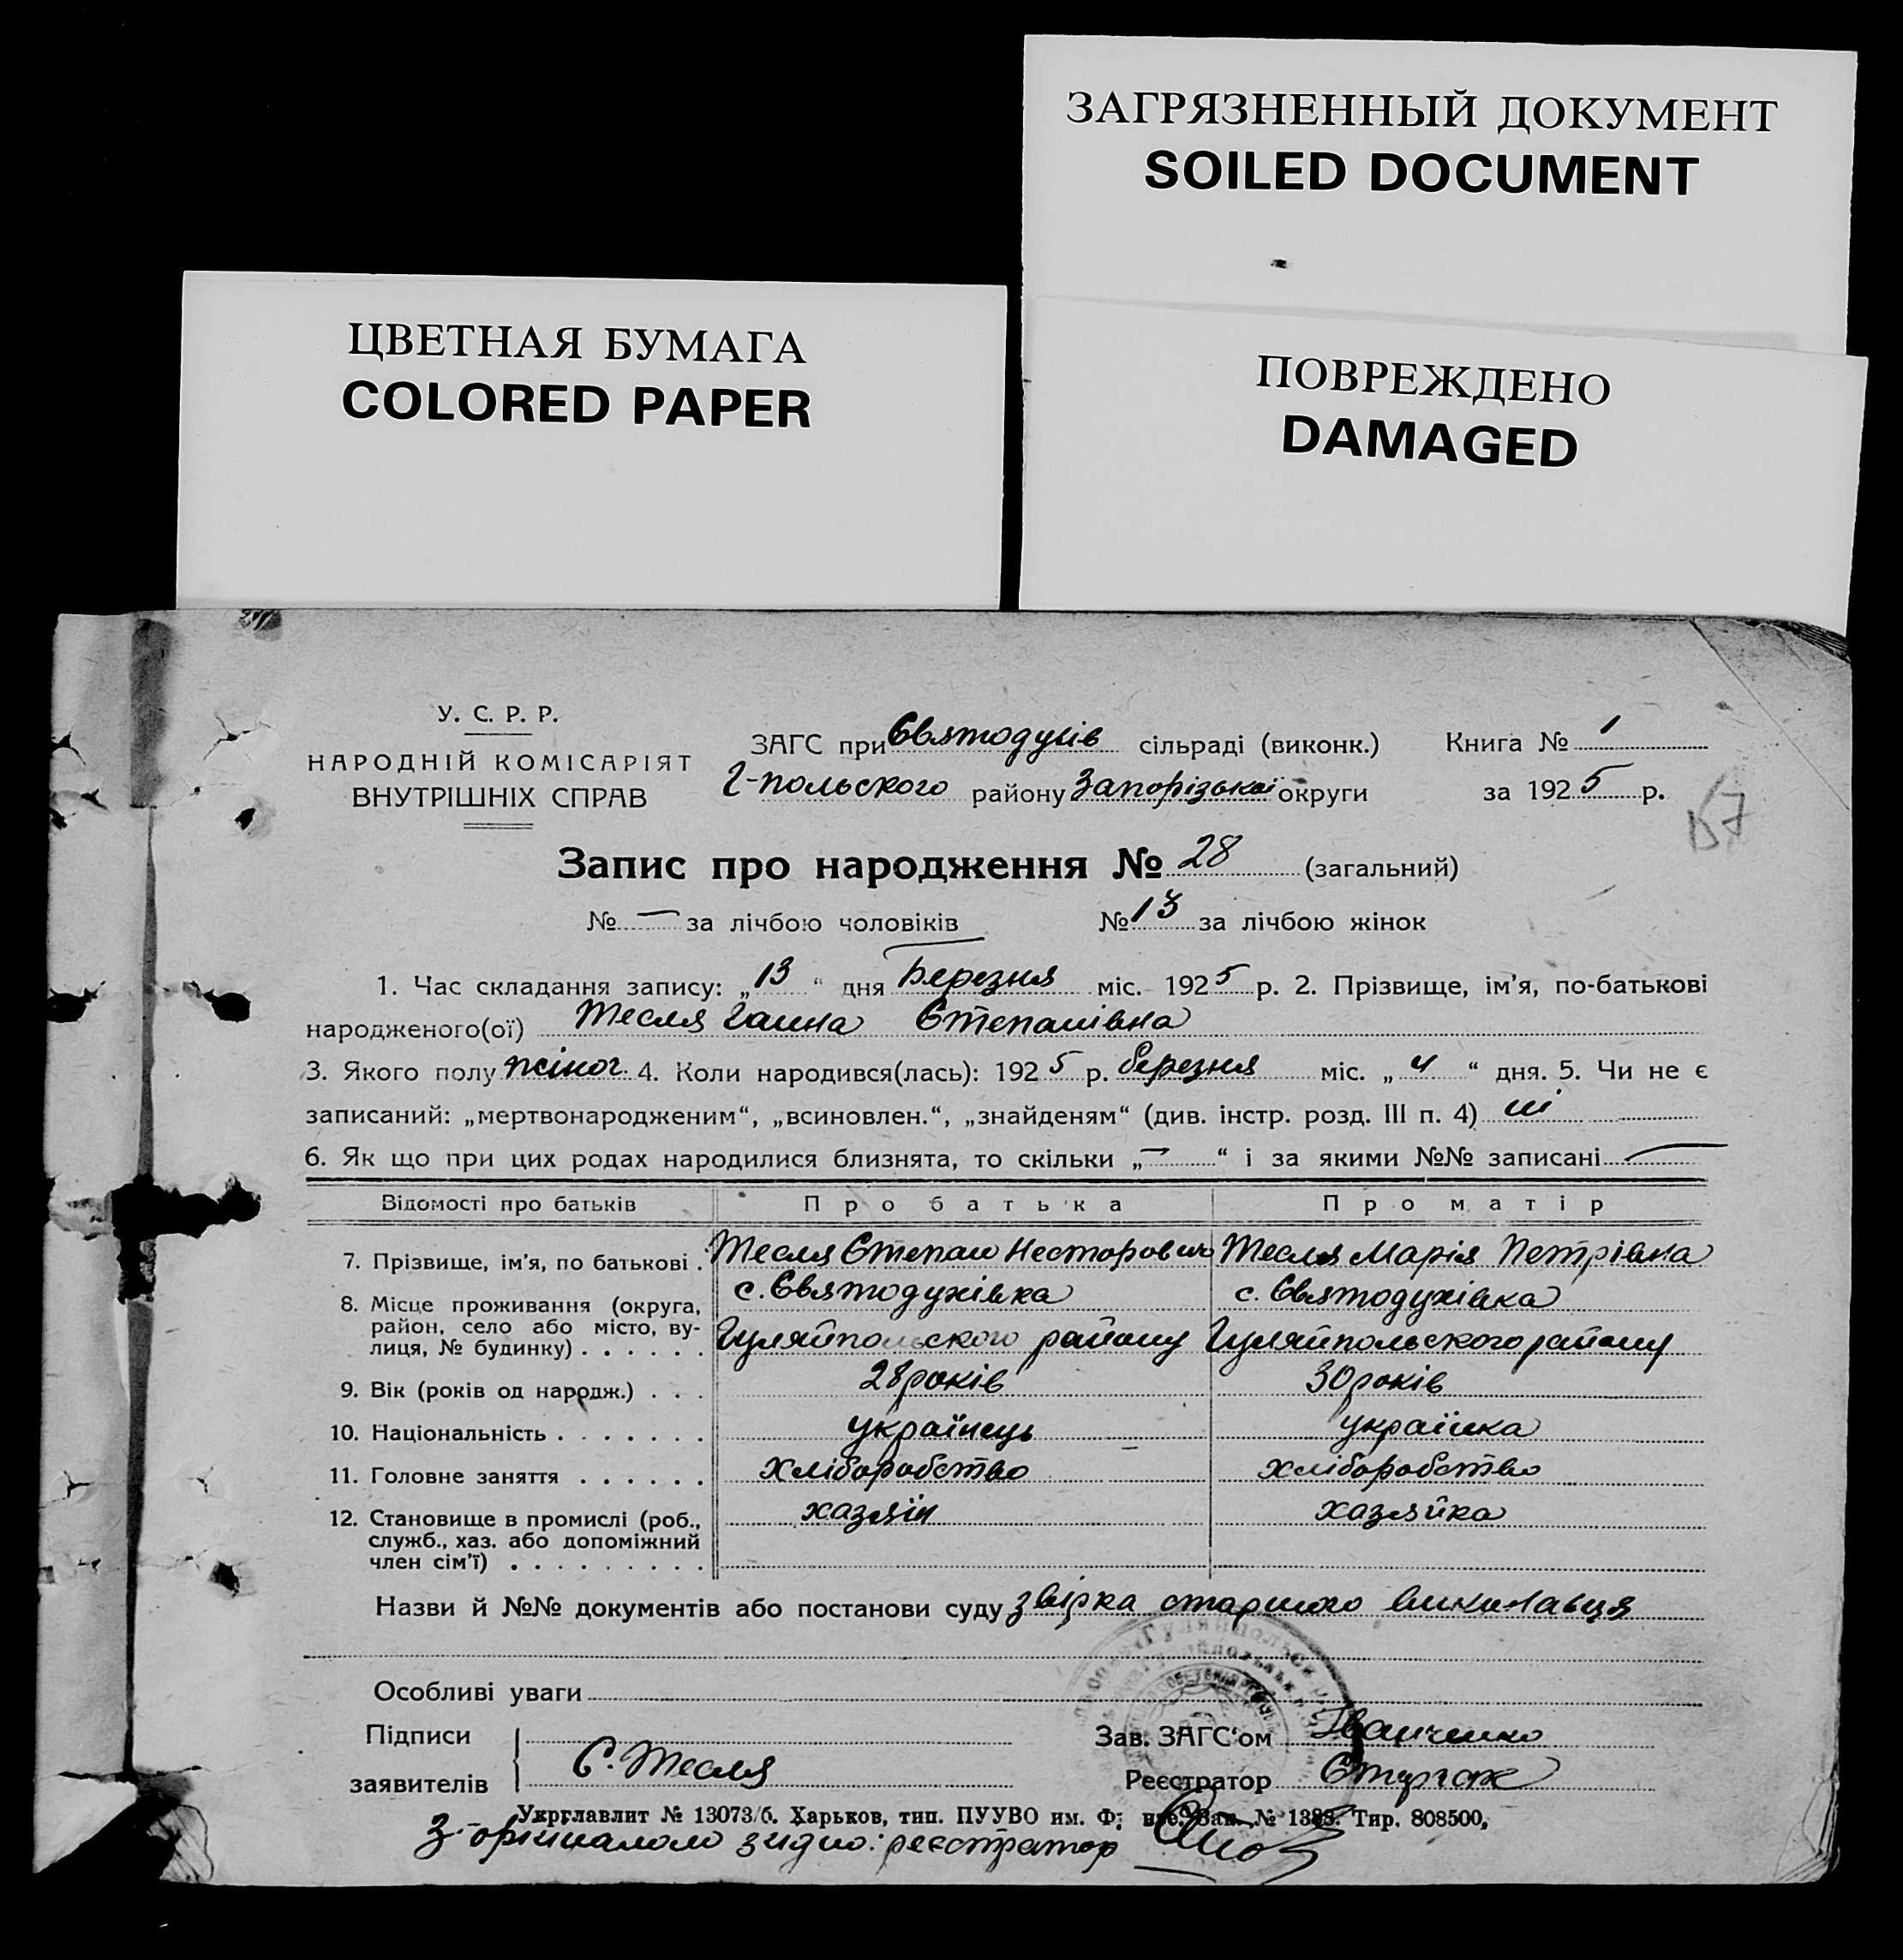 ЗАГРЯЗНЕННЫЙ ДОКУМЕНТ
SOILED DOCUMENT
ЦВЕТНАЯ БУМАГА
COLORED PAPER
ПОВРЕЖДЕНО
DAMAGED
У. С. Р. Р.
НАРОДНІЙ КОМІСАРІЯТ
ВНУТРІШНІХ СПРАВ
ЗАГС при Святодухів сільраді (виконк.) Книга № 1
Г-польского району Запорізької округи за 1925 р.
Запис про народження № 28 (загальний)
№ — за лічбою чоловіків № 13 за лічбою жінок
1. Час складання запису: „13“ дня Березня міс. 1925 р. 2. Прізвище, ім'я, по-батькові
народженого(ої) Тесля Ганна Степанівна
3. Якого полу жіноч. 4. Коли народився(лась): 1925 р. березня міс. „4“ дня. 5. Чи не є
записаний: „мертвонародженим“, „всиновлен.“, „знайденям“ (див. інстр. розд. III п. 4) ні
6. Як що при цих родах народилися близнята, то скільки „—“ і за якими №№ записані —
Відомості про батьків Про батька Про матір
7. Прізвище, ім'я, по батькові . Тесля Степан Несторович Тесля Марія Петрівна
8. Місце проживання (округа, район, село або місто, вулиця, № будинку) . . . . . . с. Святодухівка Гуляйпольского району с. Святодухівка Гуляйпольского району
9. Вік (років од народж.) . . . 28 років 30 років
10. Національність . . . . . . . українець українка
11. Головне заняття . . . . . . хліборобство хліборобство
12. Становище в промислі (роб., служб., хаз. або допоміжний член сім'ї) . . . . . . . . . хазяїн хазяйка
Назви й №№ документів або постанови суду звірка старшого виконавця
Особливі уваги
Підписи заявителів С. Тесля
Зав. ЗАГС'ом Іванченко
Реєстратор
Укрглавлит № 13073/б. Харьков, тип. ПУУВО им. Ф. Зак. № 1383. Тир. 808500,
З оригіналом згідно: реєстратор